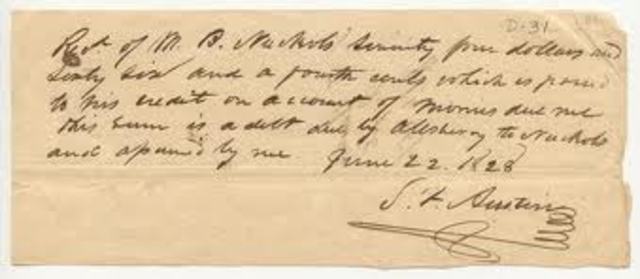 D-31
Rect of M. B. Nuckols Seventy four dollars and
Sixty Six and a fourth cents which is passed
to his credit on account of monies due me
this Sum is a debt due by Allsberry to Nuckols
and assumed by me. June 22. 1828
S. F. Austin